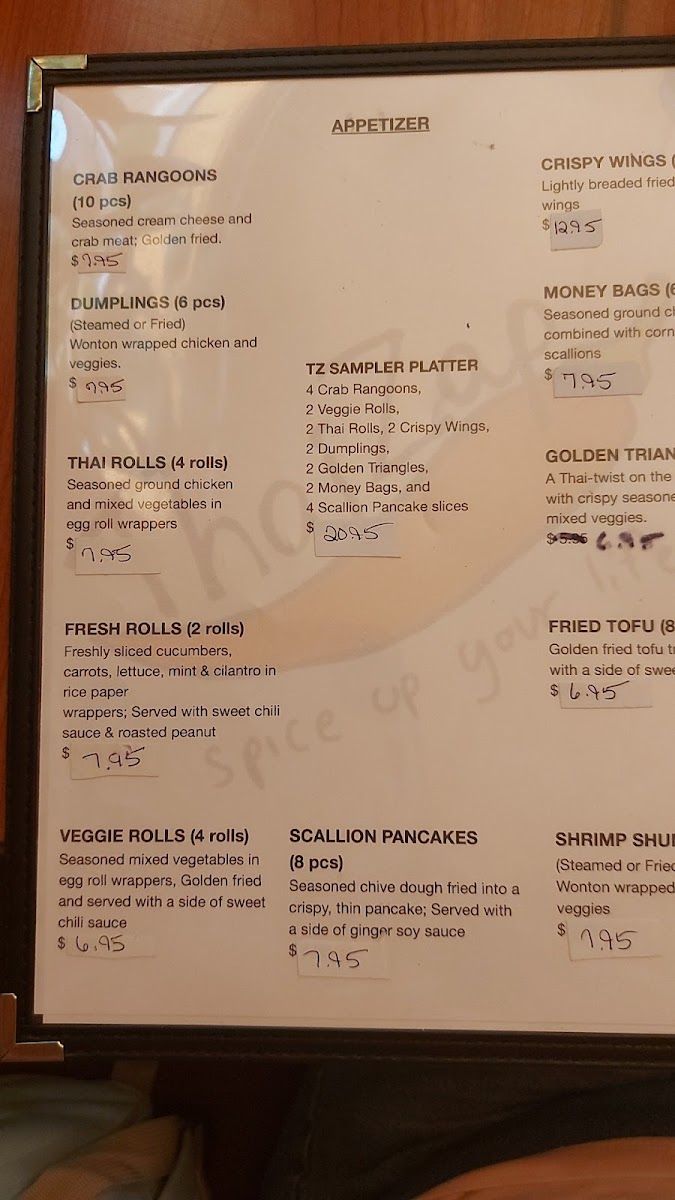 APPETIZER
CRAB RANGOONS
(10 pcs)
Seasoned cream cheese and
crab meat; Golden fried.
$7.95
DUMPLINGS (6 pcs)
(Steamed or Fried)
Wonton wrapped chicken and
veggies.
$ 7.95
THAI ROLLS (4 rolls)
Seasoned ground chicken
and mixed vegetables in
egg roll wrappers
$ 7.95
FRESH ROLLS (2 rolls)
Freshly sliced cucumbers,
carrots, lettuce, mint & cilantro in
rice paper
wrappers; Served with sweet chili
sauce & roasted peanut
$ 7.95
VEGGIE ROLLS (4 rolls)
Seasoned mixed vegetables in
egg roll wrappers, Golden fried
and served with a side of sweet
chili sauce
$ 6.95
TZ SAMPLER PLATTER
4 Crab Rangoons,
2 Veggie Rolls,
2 Thai Rolls, 2 Crispy Wings,
2 Dumplings,
2 Golden Triangles,
2 Money Bags, and
4 Scallion Pancake slices
$ 20.95
SCALLION PANCAKES
(8 pcs)
Seasoned chive dough fried into a
crispy, thin pancake; Served with
a side of ginger soy sauce
$ 7.95
CRISPY WINGS (
Lightly breaded fried
wings
$ 12.95
MONEY BAGS (6
Seasoned ground
combined with corn
scallions
$ 7.95
GOLDEN TRIAN
A Thai-twist on the
with crispy seasone
mixed veggies.
$5.95 6.95
FRIED TOFU (8
Golden fried tofu
with a side of swee
$ 6.95
SHRIMP SHU
(Steamed or Fried
Wonton wrapped
veggies
$ 7.95
spice up your life